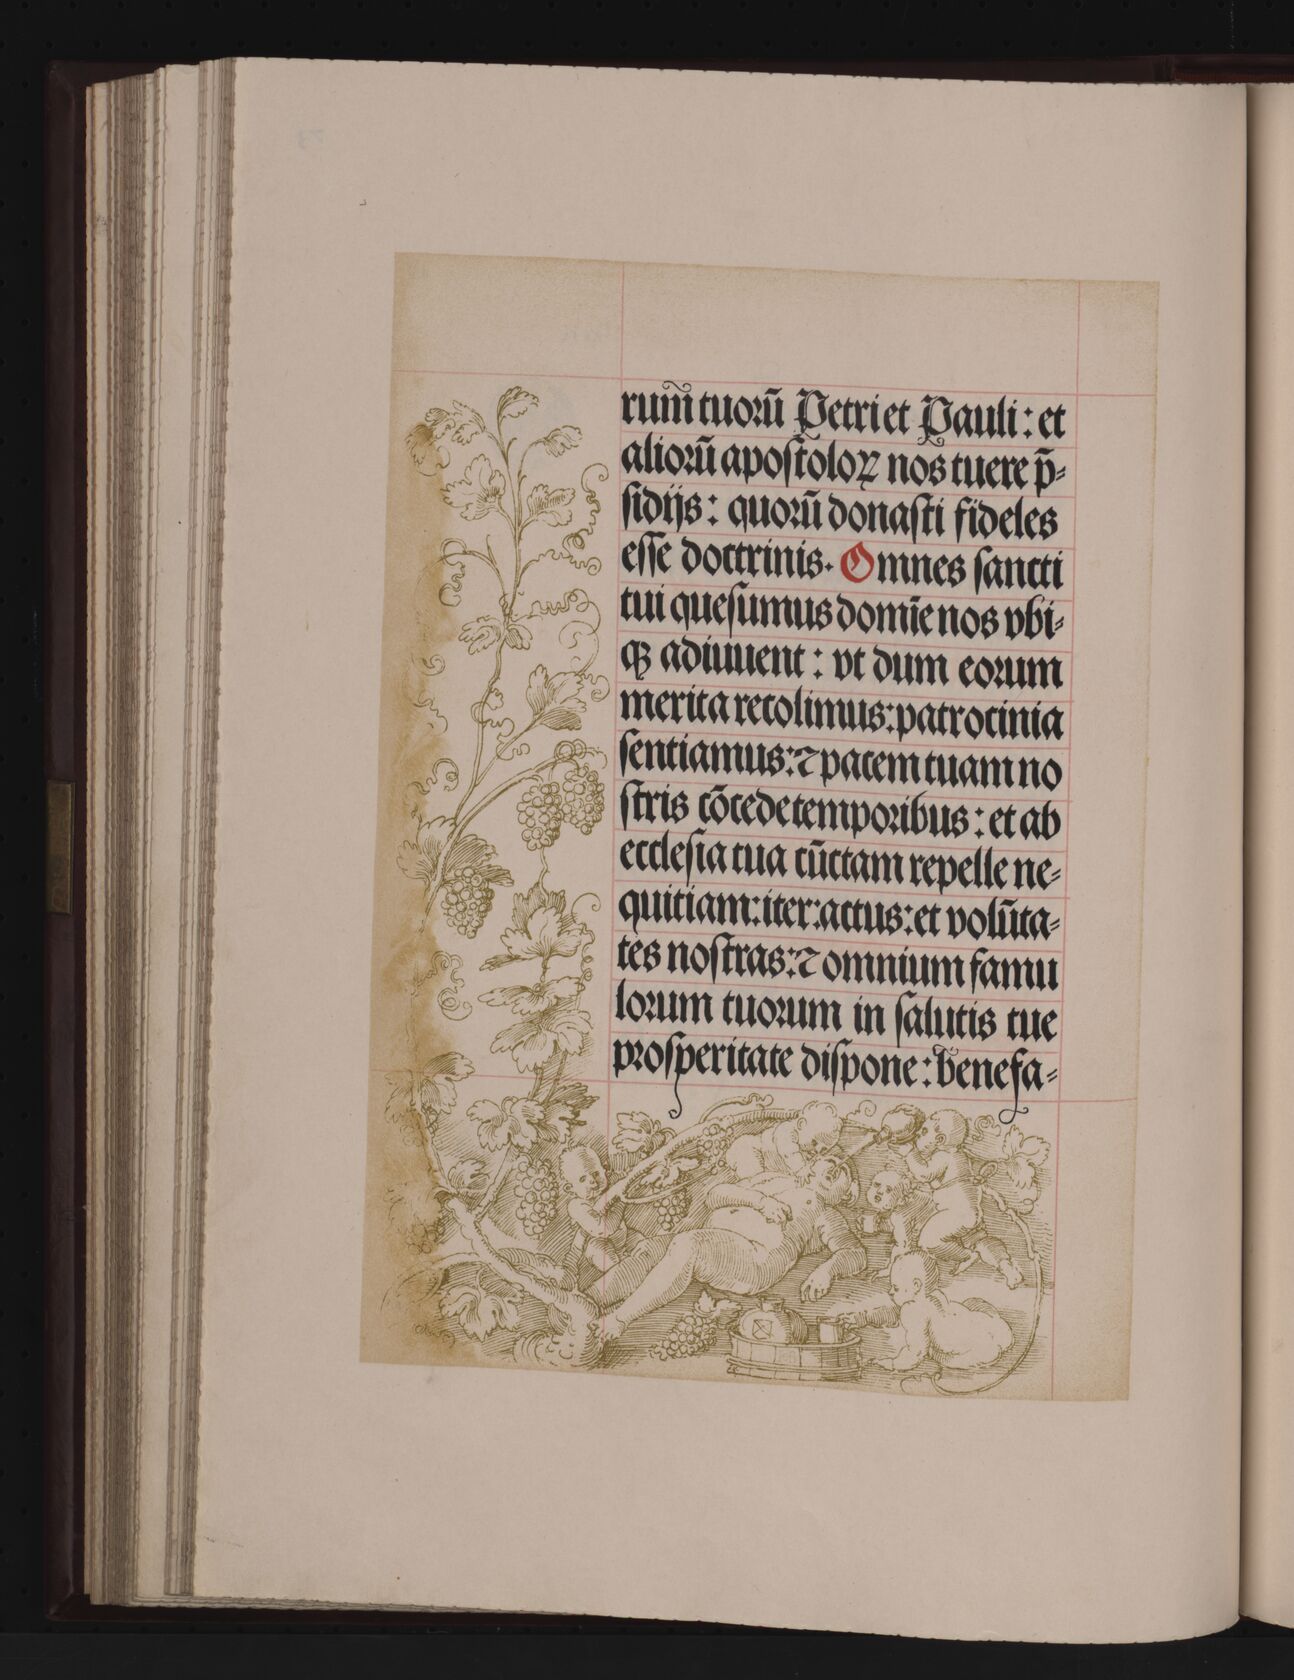 rum̄ tuorū Petri et Pauli: et
aliorū apostoloꝝ nos tuere p̄⸗
sidijs: quorū donasti fideles
esse doctrinis. Omnes sancti
tui quesumus domīe nos vbi⸗
qꝫ adiuuent: vt dum eorum
merita recolimus: patrocinia
sentiamus: ⁊ pacem tuam no
stris cōcede temporibus: et ab
ecclesia tua cūctam repelle ne⸗
quitiam: iter: actus: et volūta⸗
tes nostras: ⁊ omnium famu
lorum tuorum in salutis tue
prosperitate dispone: benefa⸗